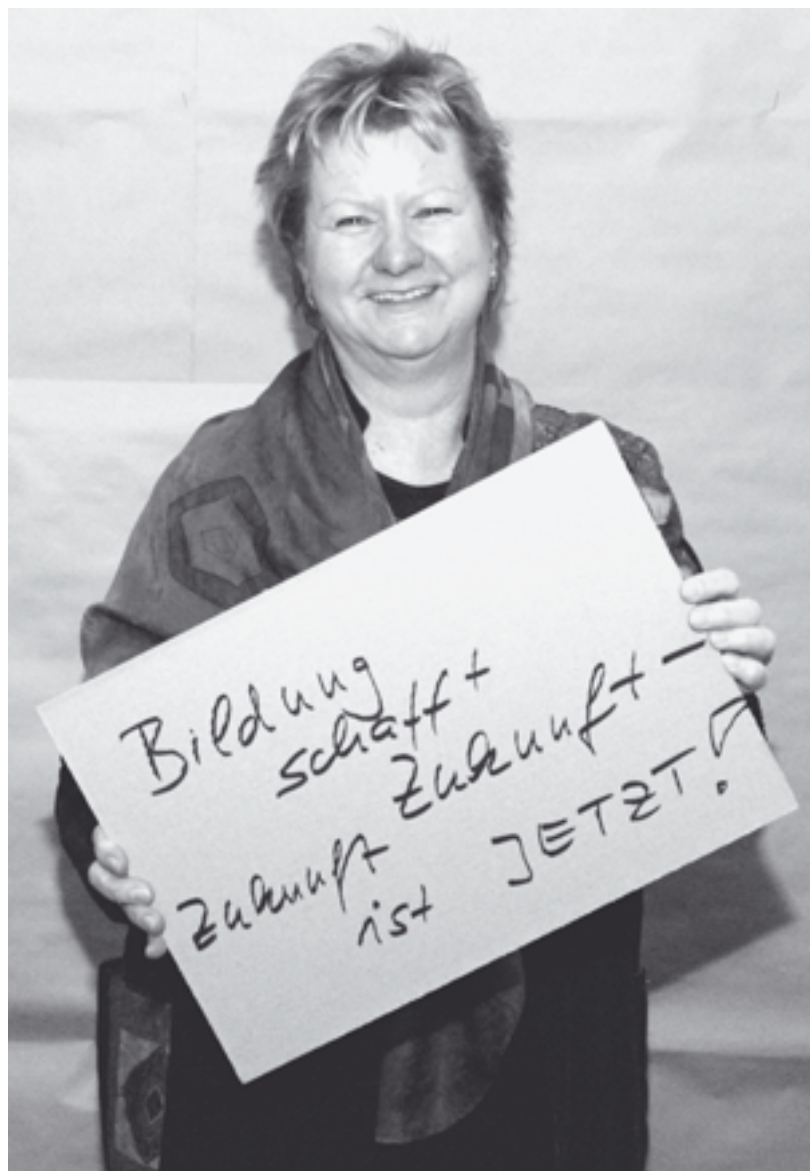 Bildung
schafft
Zukunft –
Zukunft
ist JETZT!